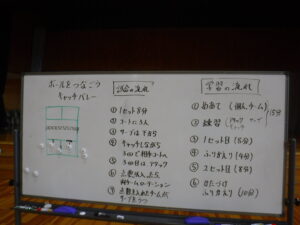 ボールをつなごう
キャッチバレー
試合の流れ
① 1セット8分
② コートに5人
③ サーブは下から
④ キャッチしながら
3回で相手コートへ
⑤ 3回目は アタック
⑥ 点数が入ったら
ローテーション
⑦ 点数を入れたチームが
サーブをうつ
学習の流れ
① めあて (個人、チーム)
② 練習
アタック
サーブ
キャッチ
③ 1セット目 (8分)
④ ふりかえり (4分)
⑤ 2セット目 (8分)
⑥ かたづけ
ふりかえり (10分)